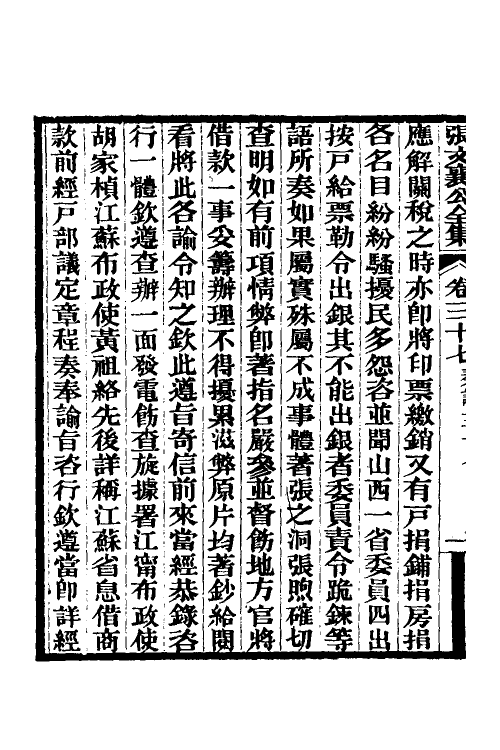 張文襄公全集 卷三十七 奏議三十七 一
應解關稅之時亦卽將印票繳銷又有戸捐鋪捐房捐
各名目紛紛騷擾民多怨咨並聞山西一省委員四出
按戸給票勒令出銀其不能出銀者委員責令跪鍊等
語所奏如果屬實殊屬不成事體著張之洞張煦確切
查明如有前項情弊卽著指名嚴參並督飭地方官將
借款一事妥籌辦理不得擾累滋弊原片均著鈔給閱
看將此各諭令知之欽此遵旨寄信前來當經恭錄咨
行一體欽遵查辦一面發電飭查旋據署江甯布政使
胡家楨江蘇布政使黃祖絡先後詳稱江蘇省息借商
款前經戸部議定章程奏奉諭旨咨行欽遵當卽詳經